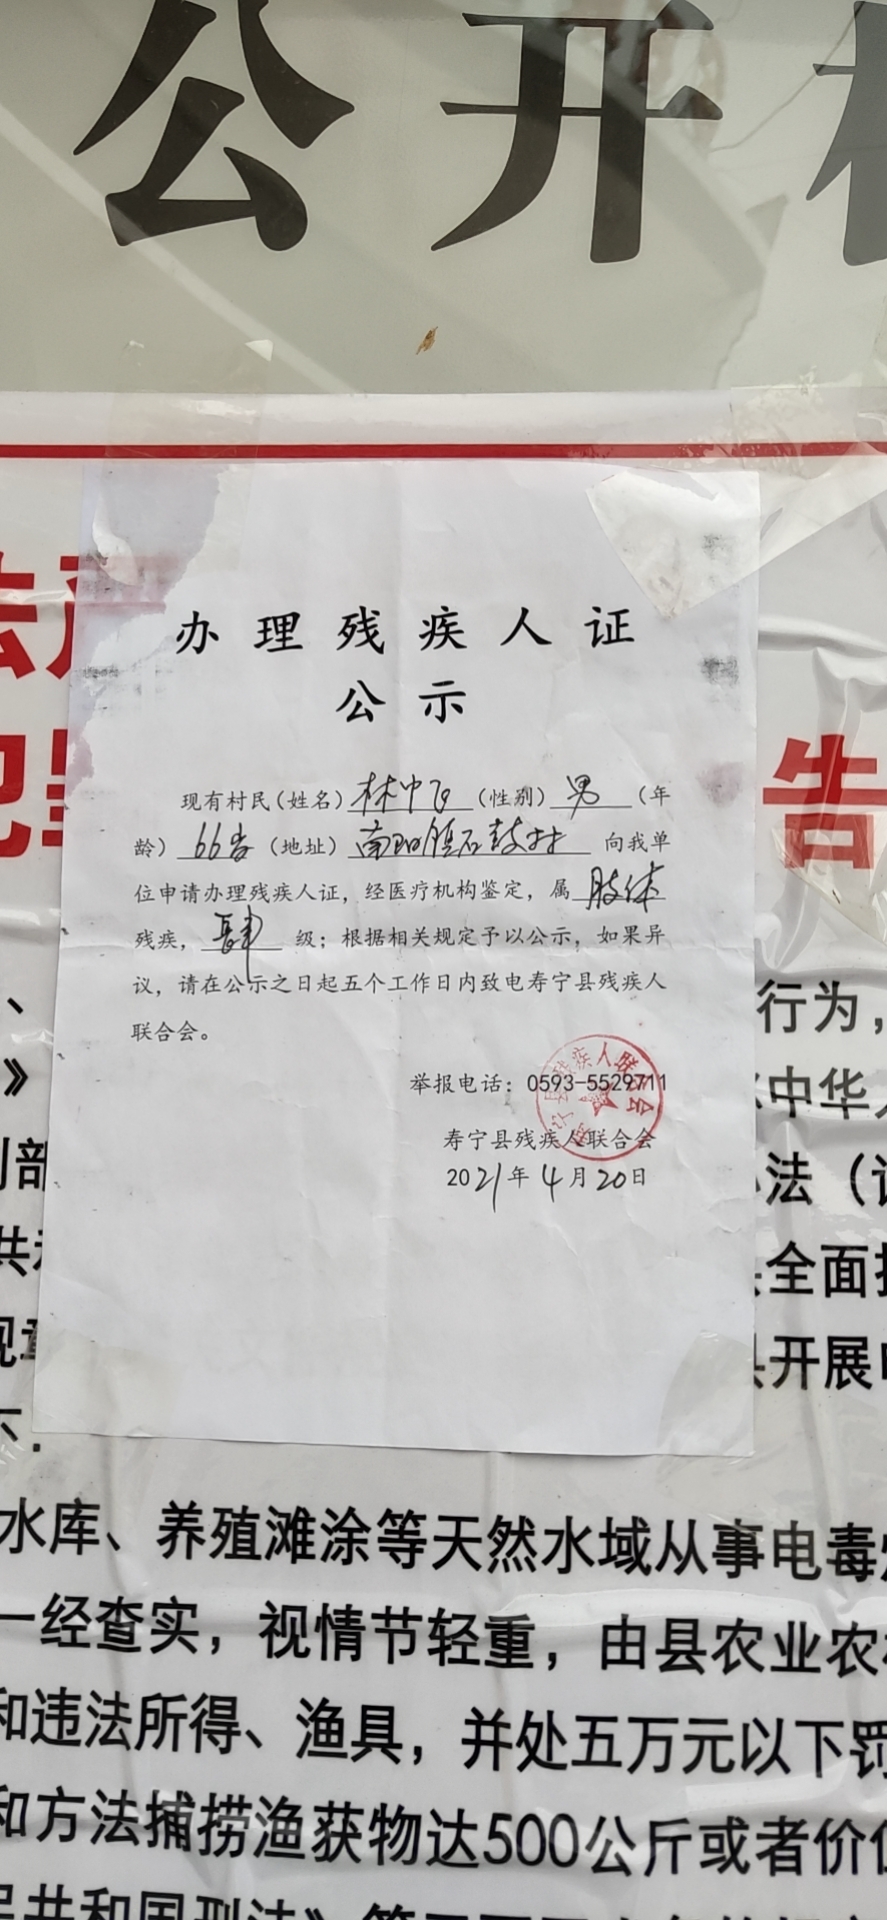 公开
办理残疾人证
公示
现有村民(姓名)林中飞(性别)男(年
龄)66岁(地址)南阳镇石鼓村 向我单
位申请办理残疾人证，经医疗机构鉴定，属肢体
残疾，肆级；根据相关规定予以公示，如果异
议，请在公示之日起五个工作日内致电寿宁县残疾人
联合会。
举报电话：0593-5529711
寿宁县残疾人联合会
2021年4月20日
告
行为，
中华
法（
全面
开展
水库、养殖滩涂等天然水域从事电毒
一经查实，视情节轻重，由县农业农
和违法所得、渔具，并处五万元以下罚
和方法捕捞渔获物达500公斤或者价
共和国刑法》